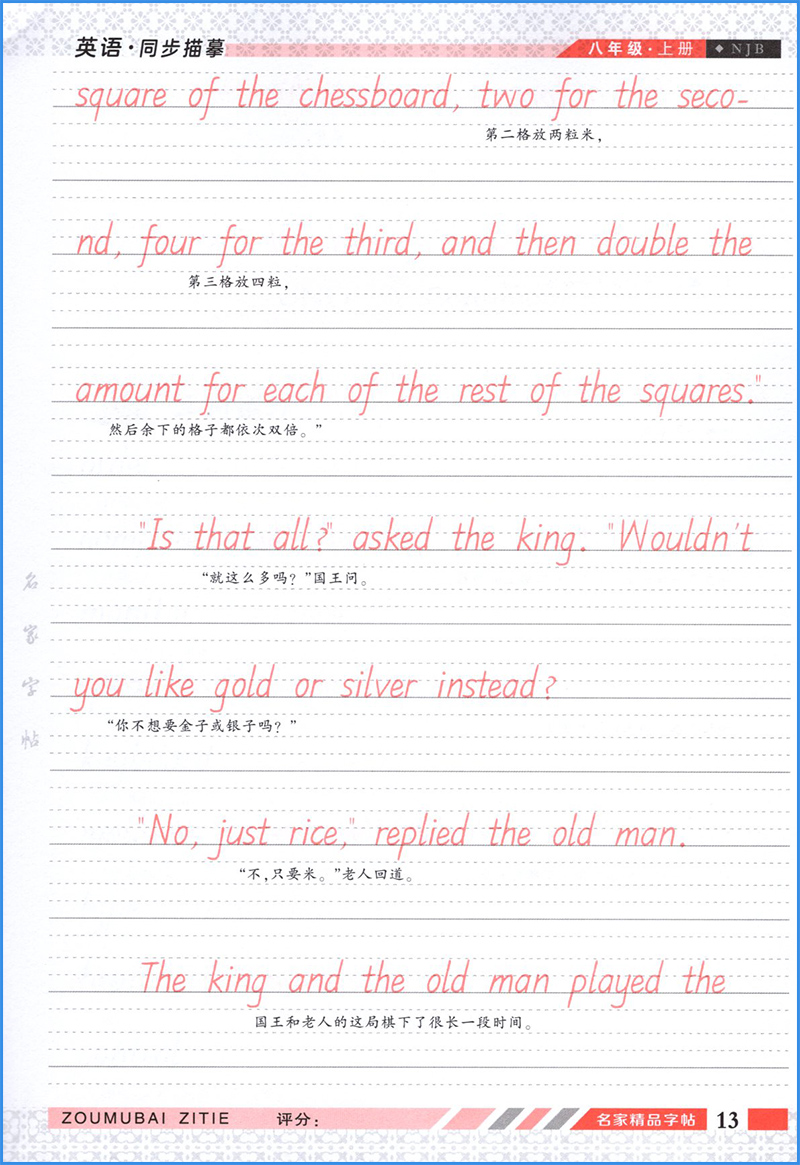 英语·同步描摹
八年级·上册 ◆ NJB
square of the chessboard, two for the seco-
第二格放两粒米，
nd, four for the third, and then double the
第三格放四粒，
amount for each of the rest of the squares."
然后余下的格子都依次双倍。”
"Is that all?" asked the king. "Wouldn't
“就这么多吗？”国王问。
you like gold or silver instead?
“你不想要金子或银子吗？”
"No, just rice," replied the old man.
“不，只要米。”老人回道。
The king and the old man played the
国王和老人的这局棋下了很长一段时间。
名家字帖
ZOUMUBAI ZITIE 评分：
名家精品字帖 13